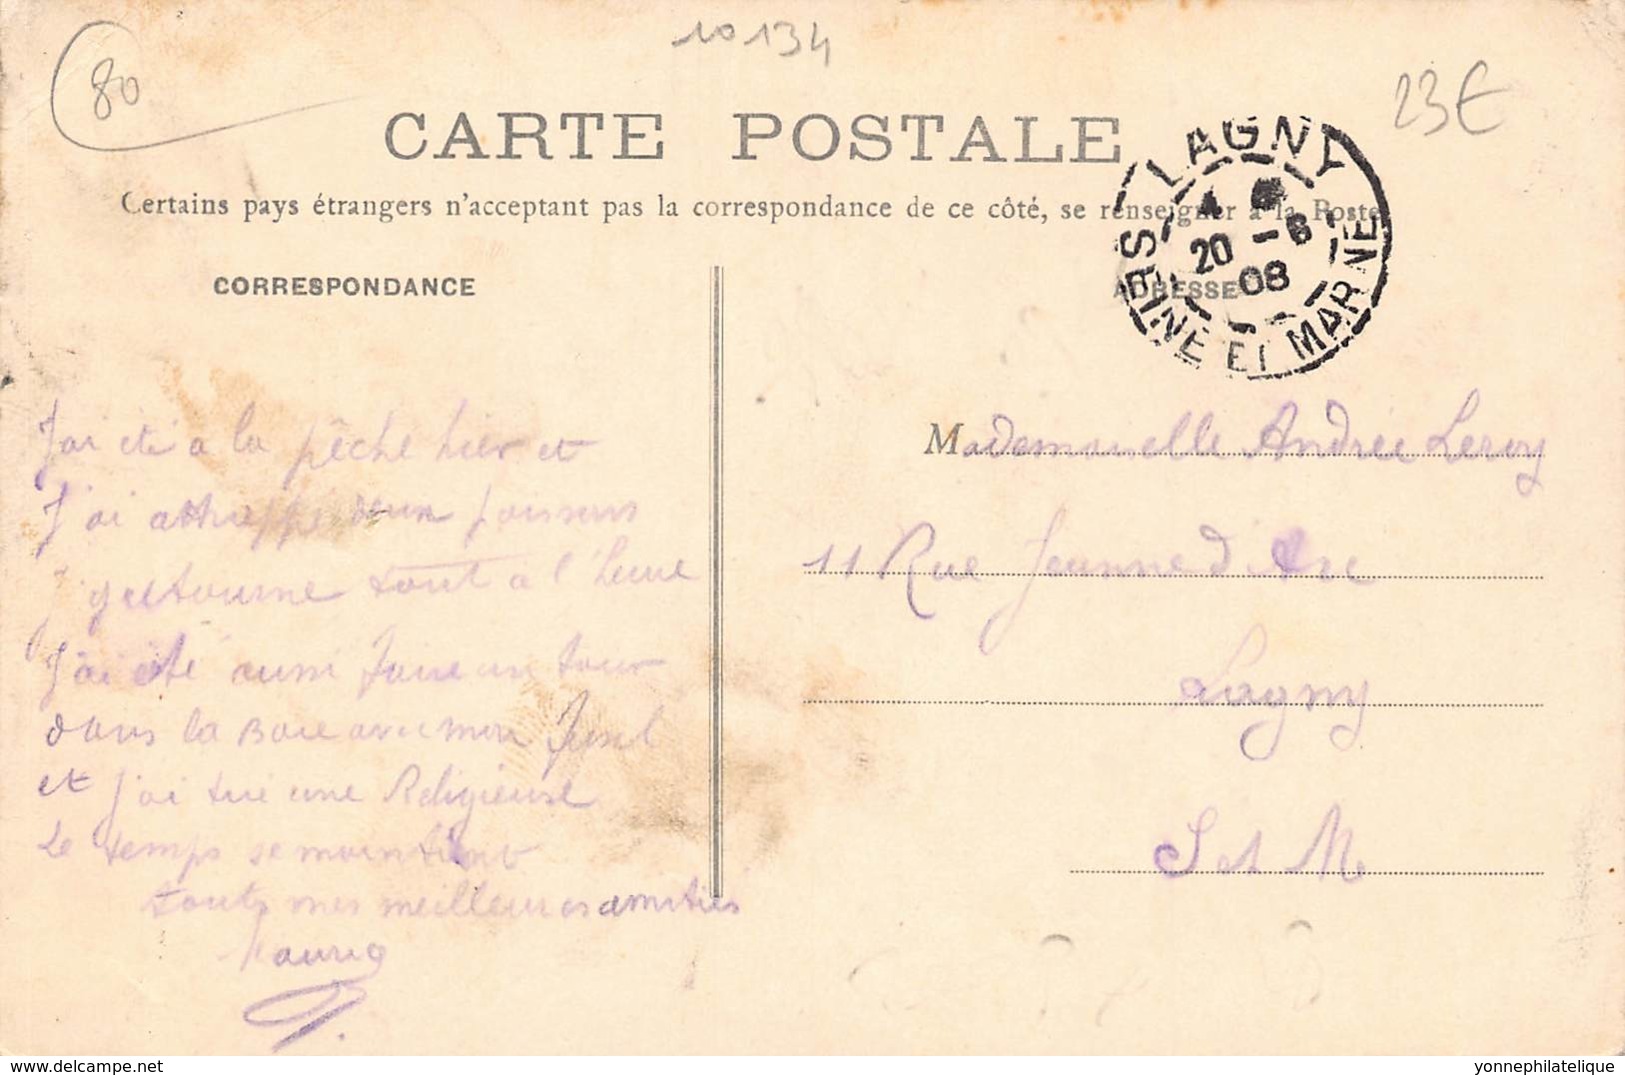 10134
80
23€
CARTE POSTALE
Certains pays étrangers n'acceptant pas la correspondance de ce côté, se renseigner à la Poste
LAGNY
4
20 -6
08
SEINE ET MARNE
CORRESPONDANCE
ADRESSE
J'ai été a la pêche hier et
J'ai attrappé deux poissons
tout a l'heure
J'ai été aussi faire un tour
dans la Boie avec mon Fusil
et j'ai tué une Religieuse
Le temps se maintient
toutes mes meilleures amitiés
Mademoiselle Andrée Leroy
11 Rue Jeanne d'Arc
Lagny
S et M
https://www.delcampe.net
yonnephilatelique